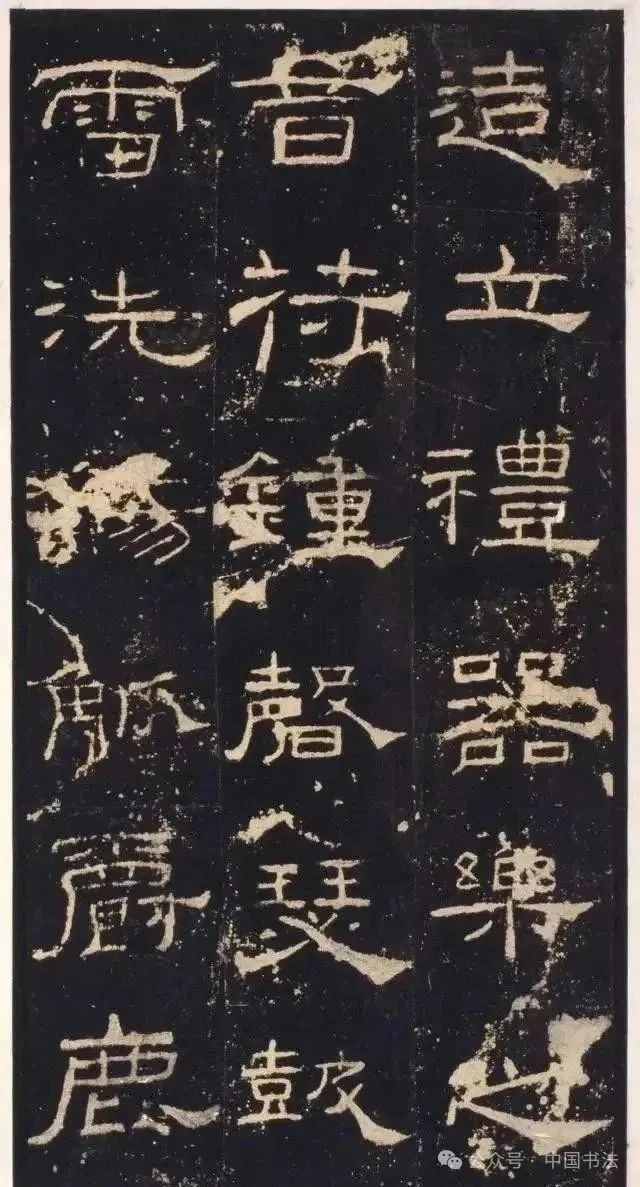 造立禮器樂之
音苻鍾磬瑟皷
雷洗觴觚爵鹿
公众号 · 中国书法